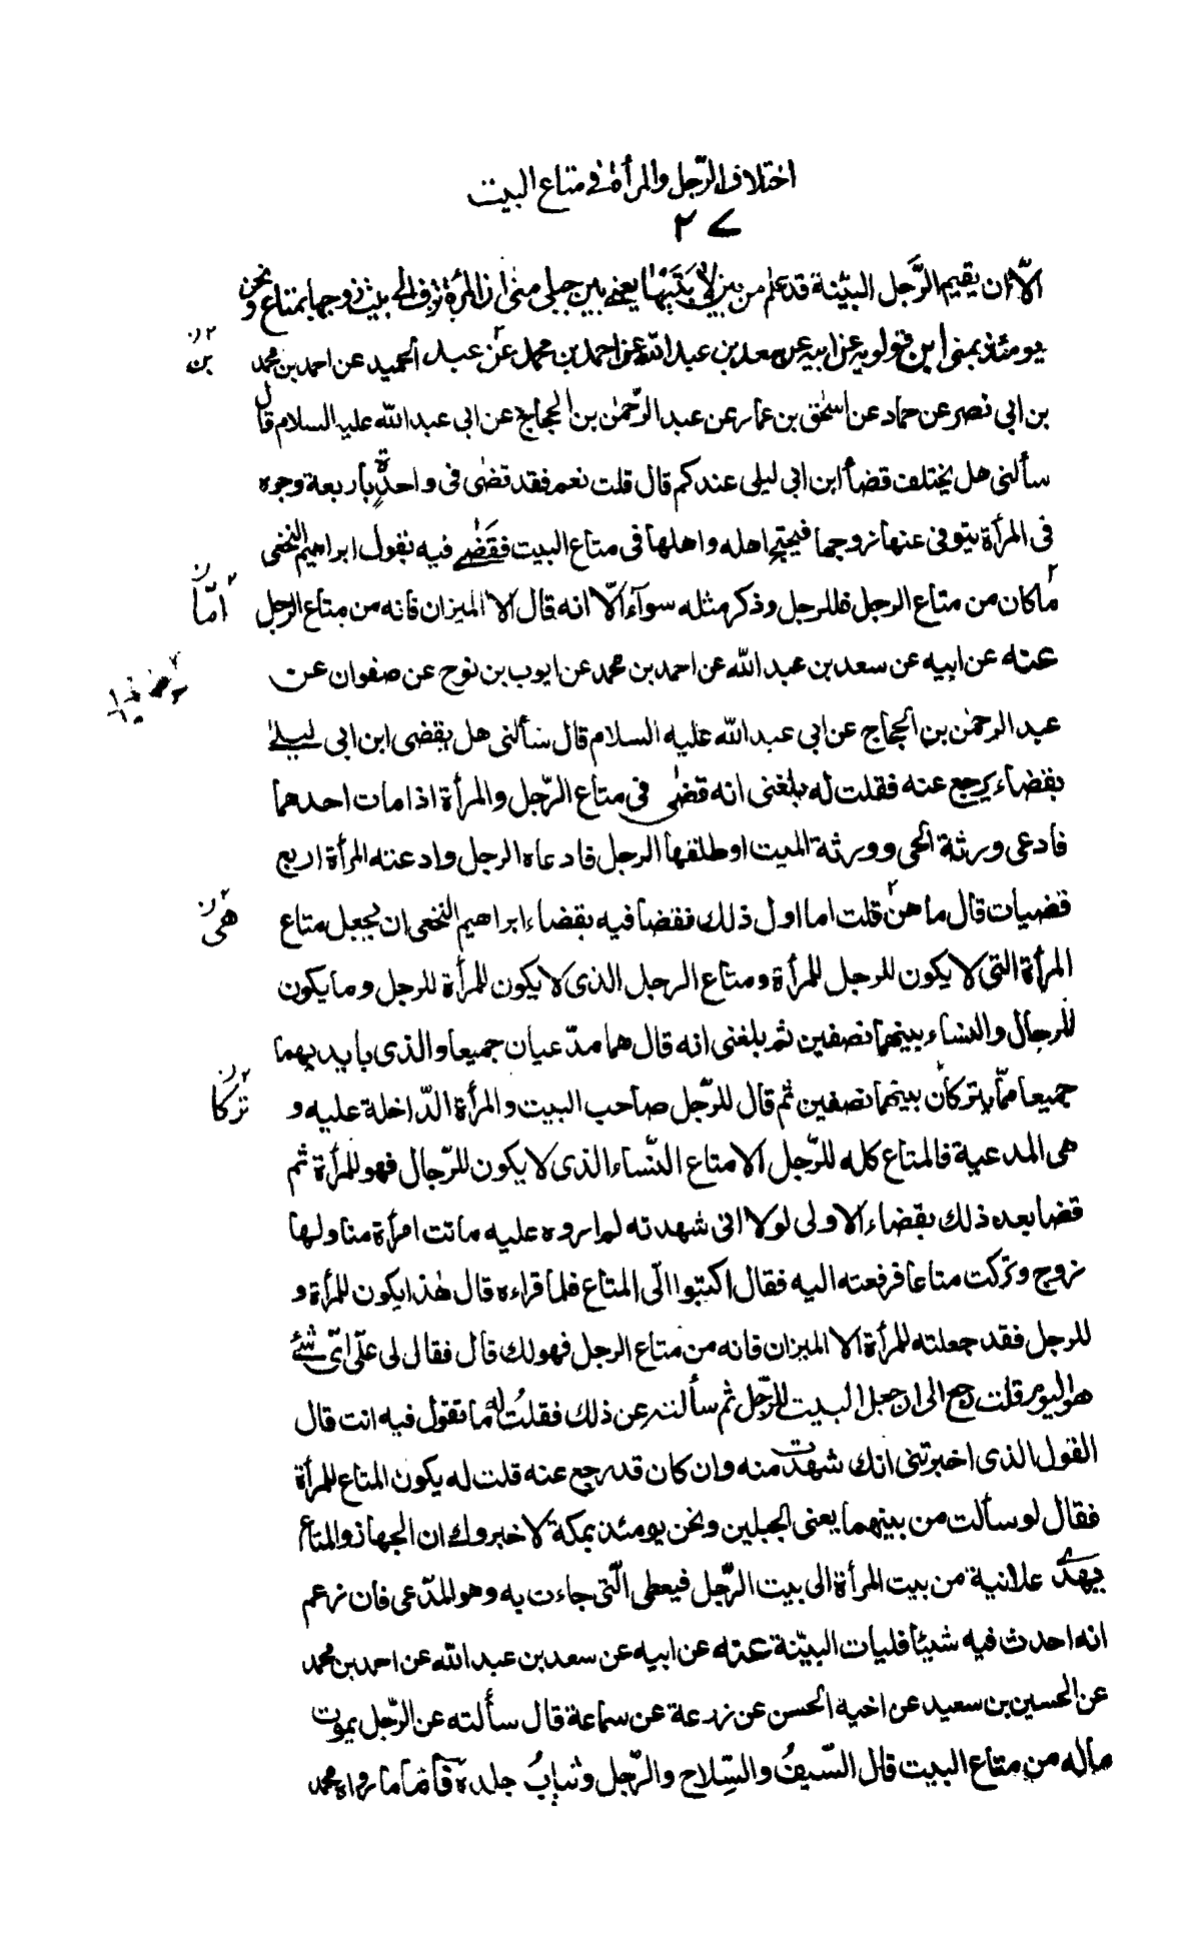 اختلاف الرّجل والمرأة في متاع البيت
٢٧
الّا ان يقيم الرّجل البيّنة قد علم من بين لابتيها يعنى بين جبلى منى ان المرأة تزف الى بيت زوجها بمتاع ونحن
يومئذ بمنى ابن قولويه عن ابيه عن سعد بن عبد الله عن احمد بن محمد عن عبد الحميد عن احمد بن محمد
بن
بن ابى نصر عن حماد عن اسحٰق بن عمار عن عبد الرّحمٰن بن الحجاج عن ابى عبد الله عليه السلام قال
سألنى هل يختلف قضأ ابن ابى ليلى عندكم قال قلت نعم فقد قضٰى فى واحدة بأربعة وجوه
فى المرأة يتوفى عنها زوجها فيحتج اهله واهلها فى متاع البيت فقضى فيه بقول ابراهيم النخعى
ما كان من متاع الرجل فللرجل وذكر مثله سوآء الّا انه قال الا الميزان فانه من متاع الرجل
امّا
عنه عن ابيه عن سعد بن عبد الله عن احمد بن محمد عن ايوب بن نوح عن صفوان عن
عبد الرحمٰن بن الحجاج عن ابى عبد الله عليه السلام قال سألنى هل يقضى ابن ابى ليلى
بقضاء يرجع عنه فقلت له بلغنى انه قضٰى فى متاع الرّجل والمرأة اذا مات احدهما
فادعى ورثة الحى وورثة الميت او طلقها الرجل فادعاه الرجل وادعته المرأة اربع
قضيات قال ما هن قلت اما اول ذلك فقضا فيه بقضاء ابراهيم النخعى ان يجعل متاع
هى
المرأة التى لا يكون للرجل للمرأة ومتاع الرجل الذى لا يكون للمرأة للرجل وما يكون
للرجال والنساء بينهما نصفين ثم بلغنى انه قال هما مدّعيان جميعا والذى بايديهما
جميعا ممّا يتركان بينهما نصفين ثم قال للرّجل صاحب البيت والمرأة الدّاخلة عليه و
تركا
هى المدعية فالمتاع كله للرّجل الا متاع النّساء الذى لا يكون للرّجال فهو للمرأة ثم
قضا بعد ذلك بقضاء الاولى لولا انى شهدته لم اروه عليه ماتت امرأة منا ولها
زوج وتركت متاعا فرفعته اليه فقال اكتبوا الّى المتاع فلما قراءه قال هٰذا يكون للمرأة و
للرجل فقد جعلته للمرأة الا الميزان فانه من متاع الرجل فهو لك قال فقال لى على اىّ شئ
هو اليوم قلت رجع الى ان جعل البيت للرّجل ثم سألته عن ذلك فقلتُ له ما تقول فيه انت قال
القول الذى اخبرتنى انك شهدت منه وان كان قد رجع عنه قلت له يكون المتاع للمرأة
فقال لو سألت من بينهما يعنى الجبلين ونحن يومئذ بمكة لاخبروك ان الجهاز والمتاع
يهدى علانية من بيت المرأة الى بيت الرّجل فيعطى الّتى جاءت به وهو المدّعى فان زعم
انه احدث فيه شيئا فليات البيّنة عنه عن ابيه عن سعد بن عبد الله عن احمد بن محمد
عن الحسين بن سعيد عن اخيه الحسن عن زرعة عن سماعة قال سألته عن الرّجل يموت
ماله من متاع البيت قال السّيفُ والسِّلاح والرّجل وثيابُ جلده فأما ما رواه محمد